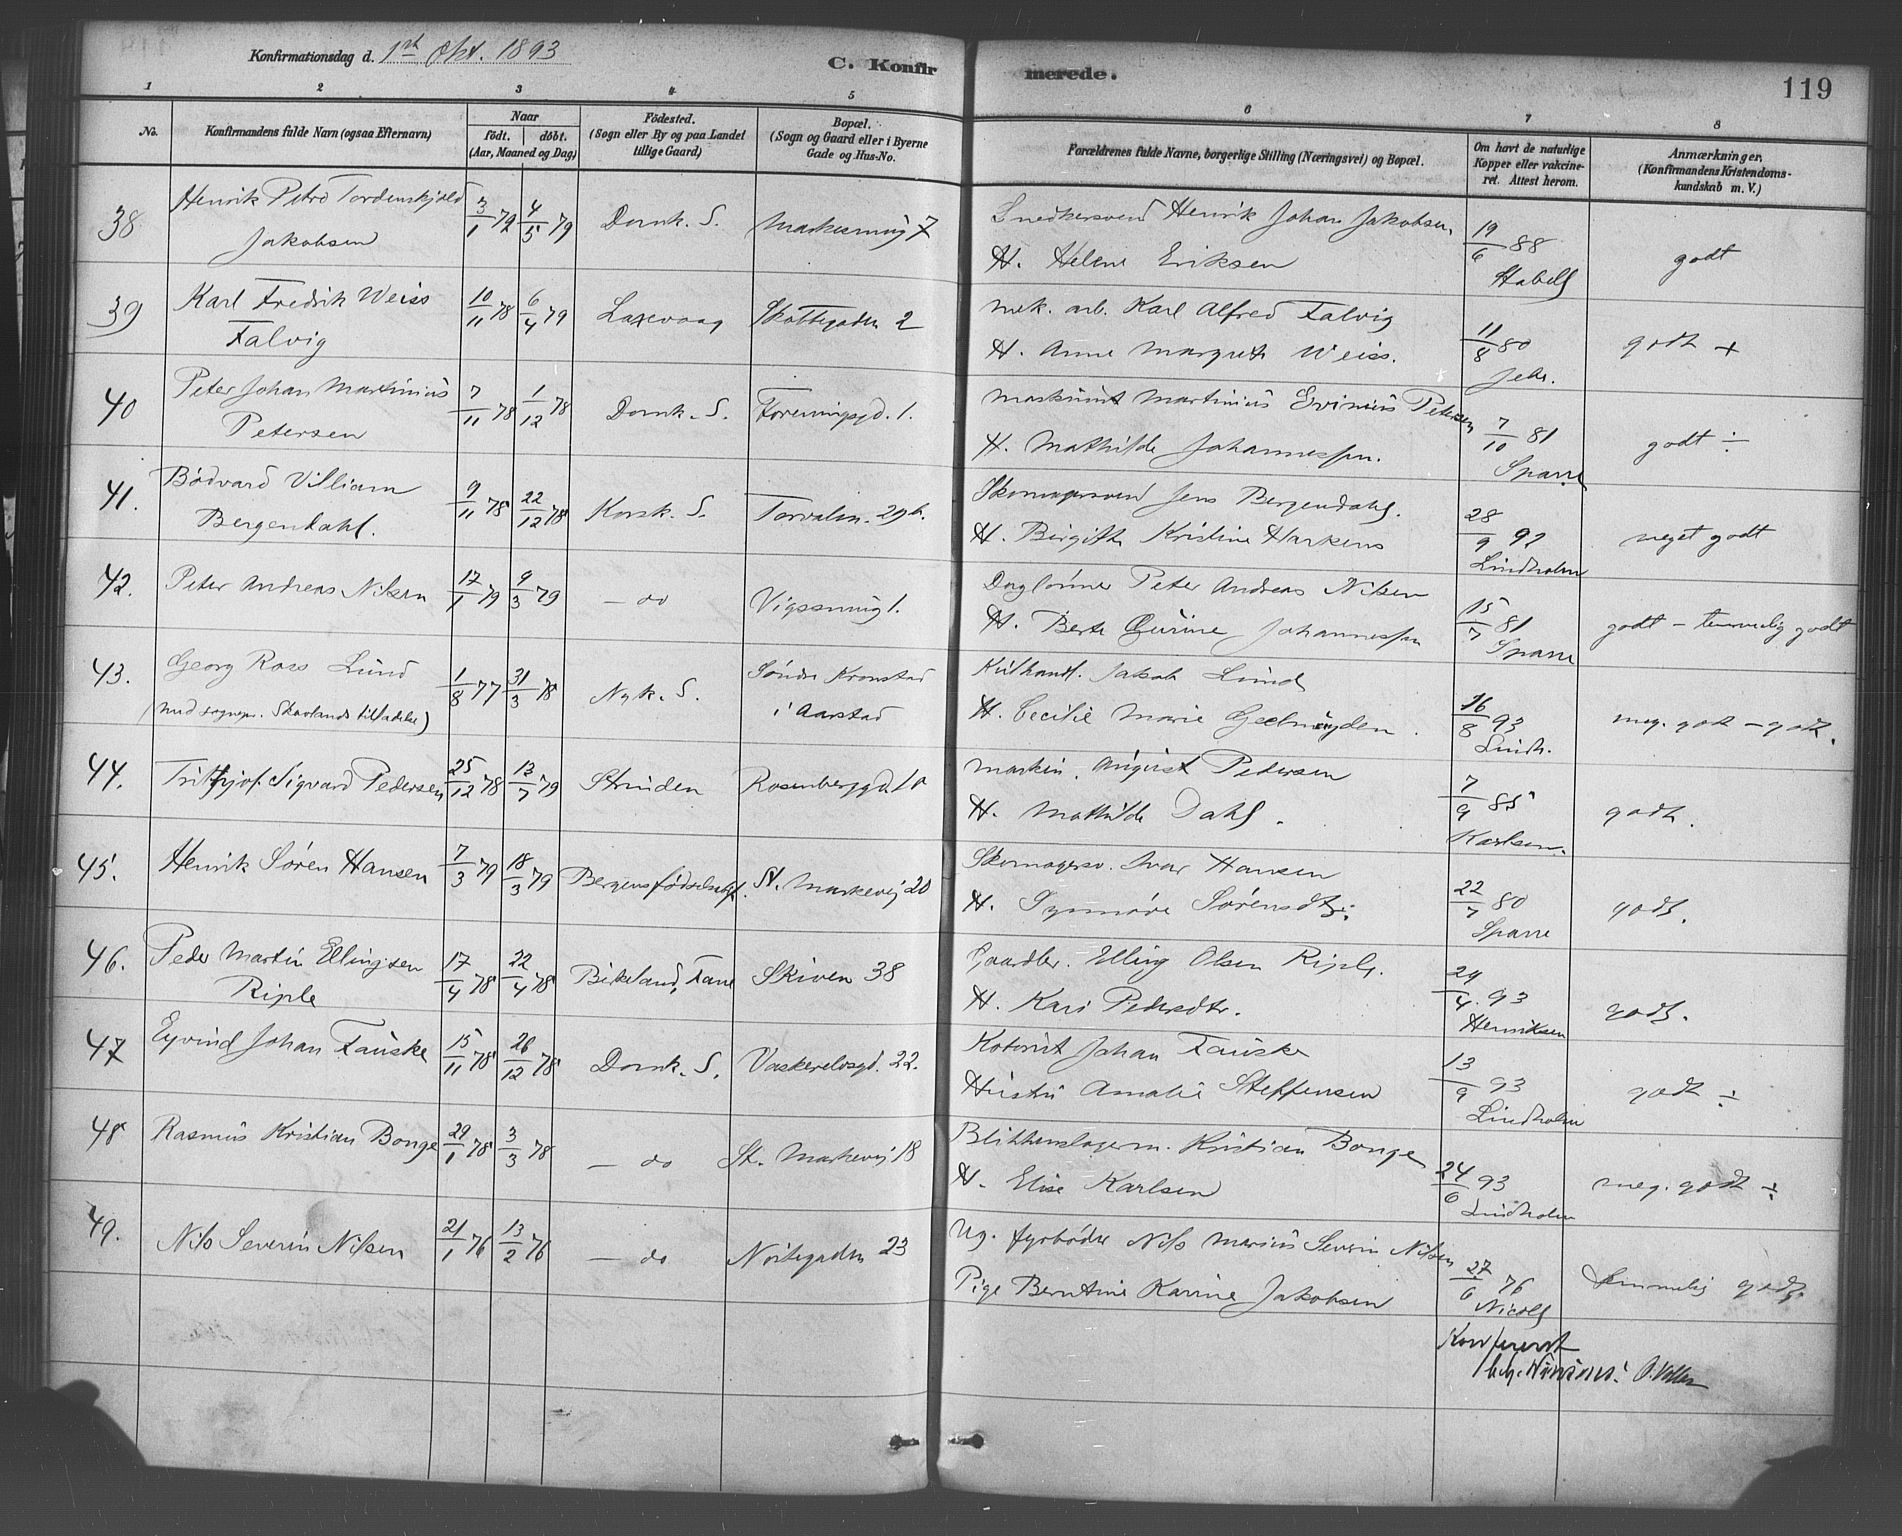 Konfirmationsdag d. 1st Okt. 1893
C. Konfirmerede.
119
1 2 3 4 5 6 7 8
No.
Konfirmandens fulde Navn (ogsaa Efternavn)
Naar
födt. döbt.
(Aar, Maaned og Dag)
Födested.
(Sogn eller By og paa Landet tillige Gaard)
Bopæl.
(Sogn og Gaard eller i Byerne Gade og Hus-No.
Forældrenes fulde Navne, borgerlige Stilling (Næringsvei) og Bopæl.
Om havt de naturlige Kopper eller vakcineret. Attest herom.
Anmærkninger.
(Konfirmandens Kristendomskundskab m. V.)
38 Henrik Petro Tordenskjold 3/1 79 4/5 79 Domk. S. 7 Snedkersvend Henrik Johan Jakobsen, 19/6 88
Jakobsen H. Helene Eriksen Stabell godt
39 Karl Fredrik Weiss 10/11 78 6/4 79 Laxevaag Skottegaden 2 mek. arb. Karl Alfred Falvig 11/8 80
Falvig H. Anne Margrete Weiss. Jebs. godt +
40 Peter Johan Martinius 7/11 78 1/12 78 Domk. S. Foreningsgd. 1. Maskinist Martinius Evinius Petersen 7/10 81
Petersen H. Mathilde Johannessen. Sparre godt ÷
41. Bødvard Villiam 9/11 78 22/12 78 Korsk. S. Torvalm. 29b. Skomagersvend Jens Bergendahl. 28/9 92
Bergendahl. H. Birgitte Kristine Harkens Lindholm meget godt
42. Peter Andreas Nilsen 17/1 79 9/3 79 — do 1. Daglønner Peter Andreas Nilsen 15/7 81
H. Berte Gurine Johannessen Sparre godt – temmelig godt
43. Georg Ross Lund 1/8 77 31/3 78 Nyk. S. Søndre Kronstad Kulhandl. Jakob Lund 16/8 93
(med sognepr. Skavlands tilladelse) i Aarstad H. Cecilie Marie Lindh. meg. godt – godt.
44. Trithjof Sigvard Pedersen 25/12 78 13/7 79 Strinden Rosenberggd. 10 Maskin. August Pedersen 7/9 85
H. Mathilde Dahl. Karlsen. godt.
45. Henrik Søren Hansen 7/3 79 18/3 79 Bergens fødselsst. St. Markevej 20 Skomagersv. Ivar Hansen 22/7 80
H. Synnøve Sørensdtr. Sparre godt.
46. Peder Martin Ellingsen 17/4 78 22/4 78 Birkeland, Fane Skiven 38 Gaardbr. Elling Olsen Riple. 29/4. 93
Riple H. Kari Pedersdtr. Henriksen godt.
47 Eyvind Johan Fauske 15/11 78 26/12 78 Domk. S. Vaskerelvsgd. 22. Kolonist Johan Fauske 13/9 93
Hustru Amalie Steffensen Lindholm godt ÷
48 Rasmus Kristian Bonge 29/1 78 3/3 78 — do St. Markevej 18 Blikkenslagerm. Kristian Bonge 24/6 93
H. Elise Karlsen Lindholm meg. godt ÷
49. Nils Severin Nilsen 21/1 76 13/2 76 — do Nøstegaden 23 Ug. fyrbøder Nils Marius Severin Nilsen 27/6 76
Pige Berntine Karine Jakobsen Nicoll temmelig godt.
Konfereret